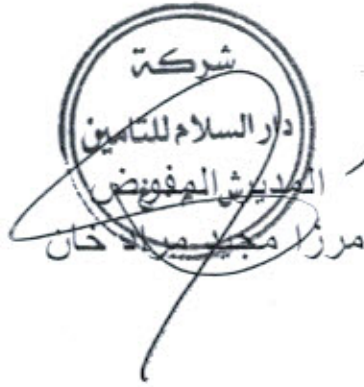 شركة
دار السلام للتأمين
المدير المفوض
مرزا مجيد مراد خان